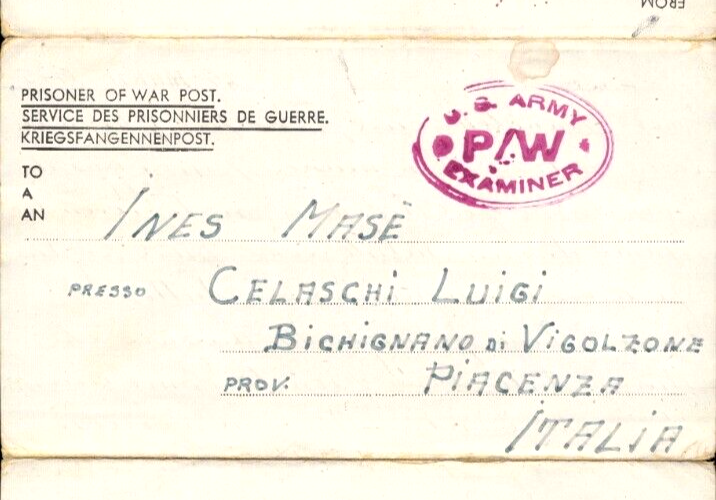 FROM
PRISONER OF WAR POST.
SERVICE DES PRISONNIERS DE GUERRE.
KRIEGSFANGENNENPOST.
U.S ARMY
P/W
EXAMINER
TO
A
AN
INES MASÈ
PRESSO CELASCHI LUIGI
BICHIGNANO DI VIGOLZONE
PROV. PIACENZA
ITALIA